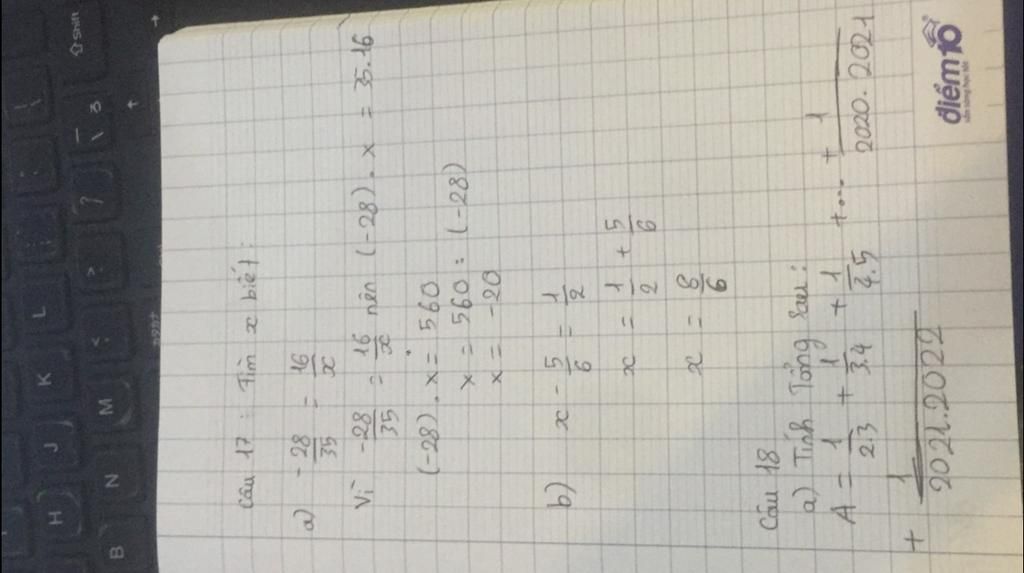 Câu 17 : Tìm x biết :
a) -28/35 = 16/x
Vì -28/35 = 16/x nên (-28) . x = 35.16
(-28) . x = 560
x = 560 : (-28)
x = -20
b) x - 5/6 = 1/2
x = 1/2 + 5/6
x = 8/6
Câu 18
a) Tính Tổng sau :
A = 1/2.3 + 1/3.4 + 1/4.5 +...+ 1/2020.2021
+ 1/2021.2022
điểm10
Shift
H J K L : {
B N M < > ? \ 3